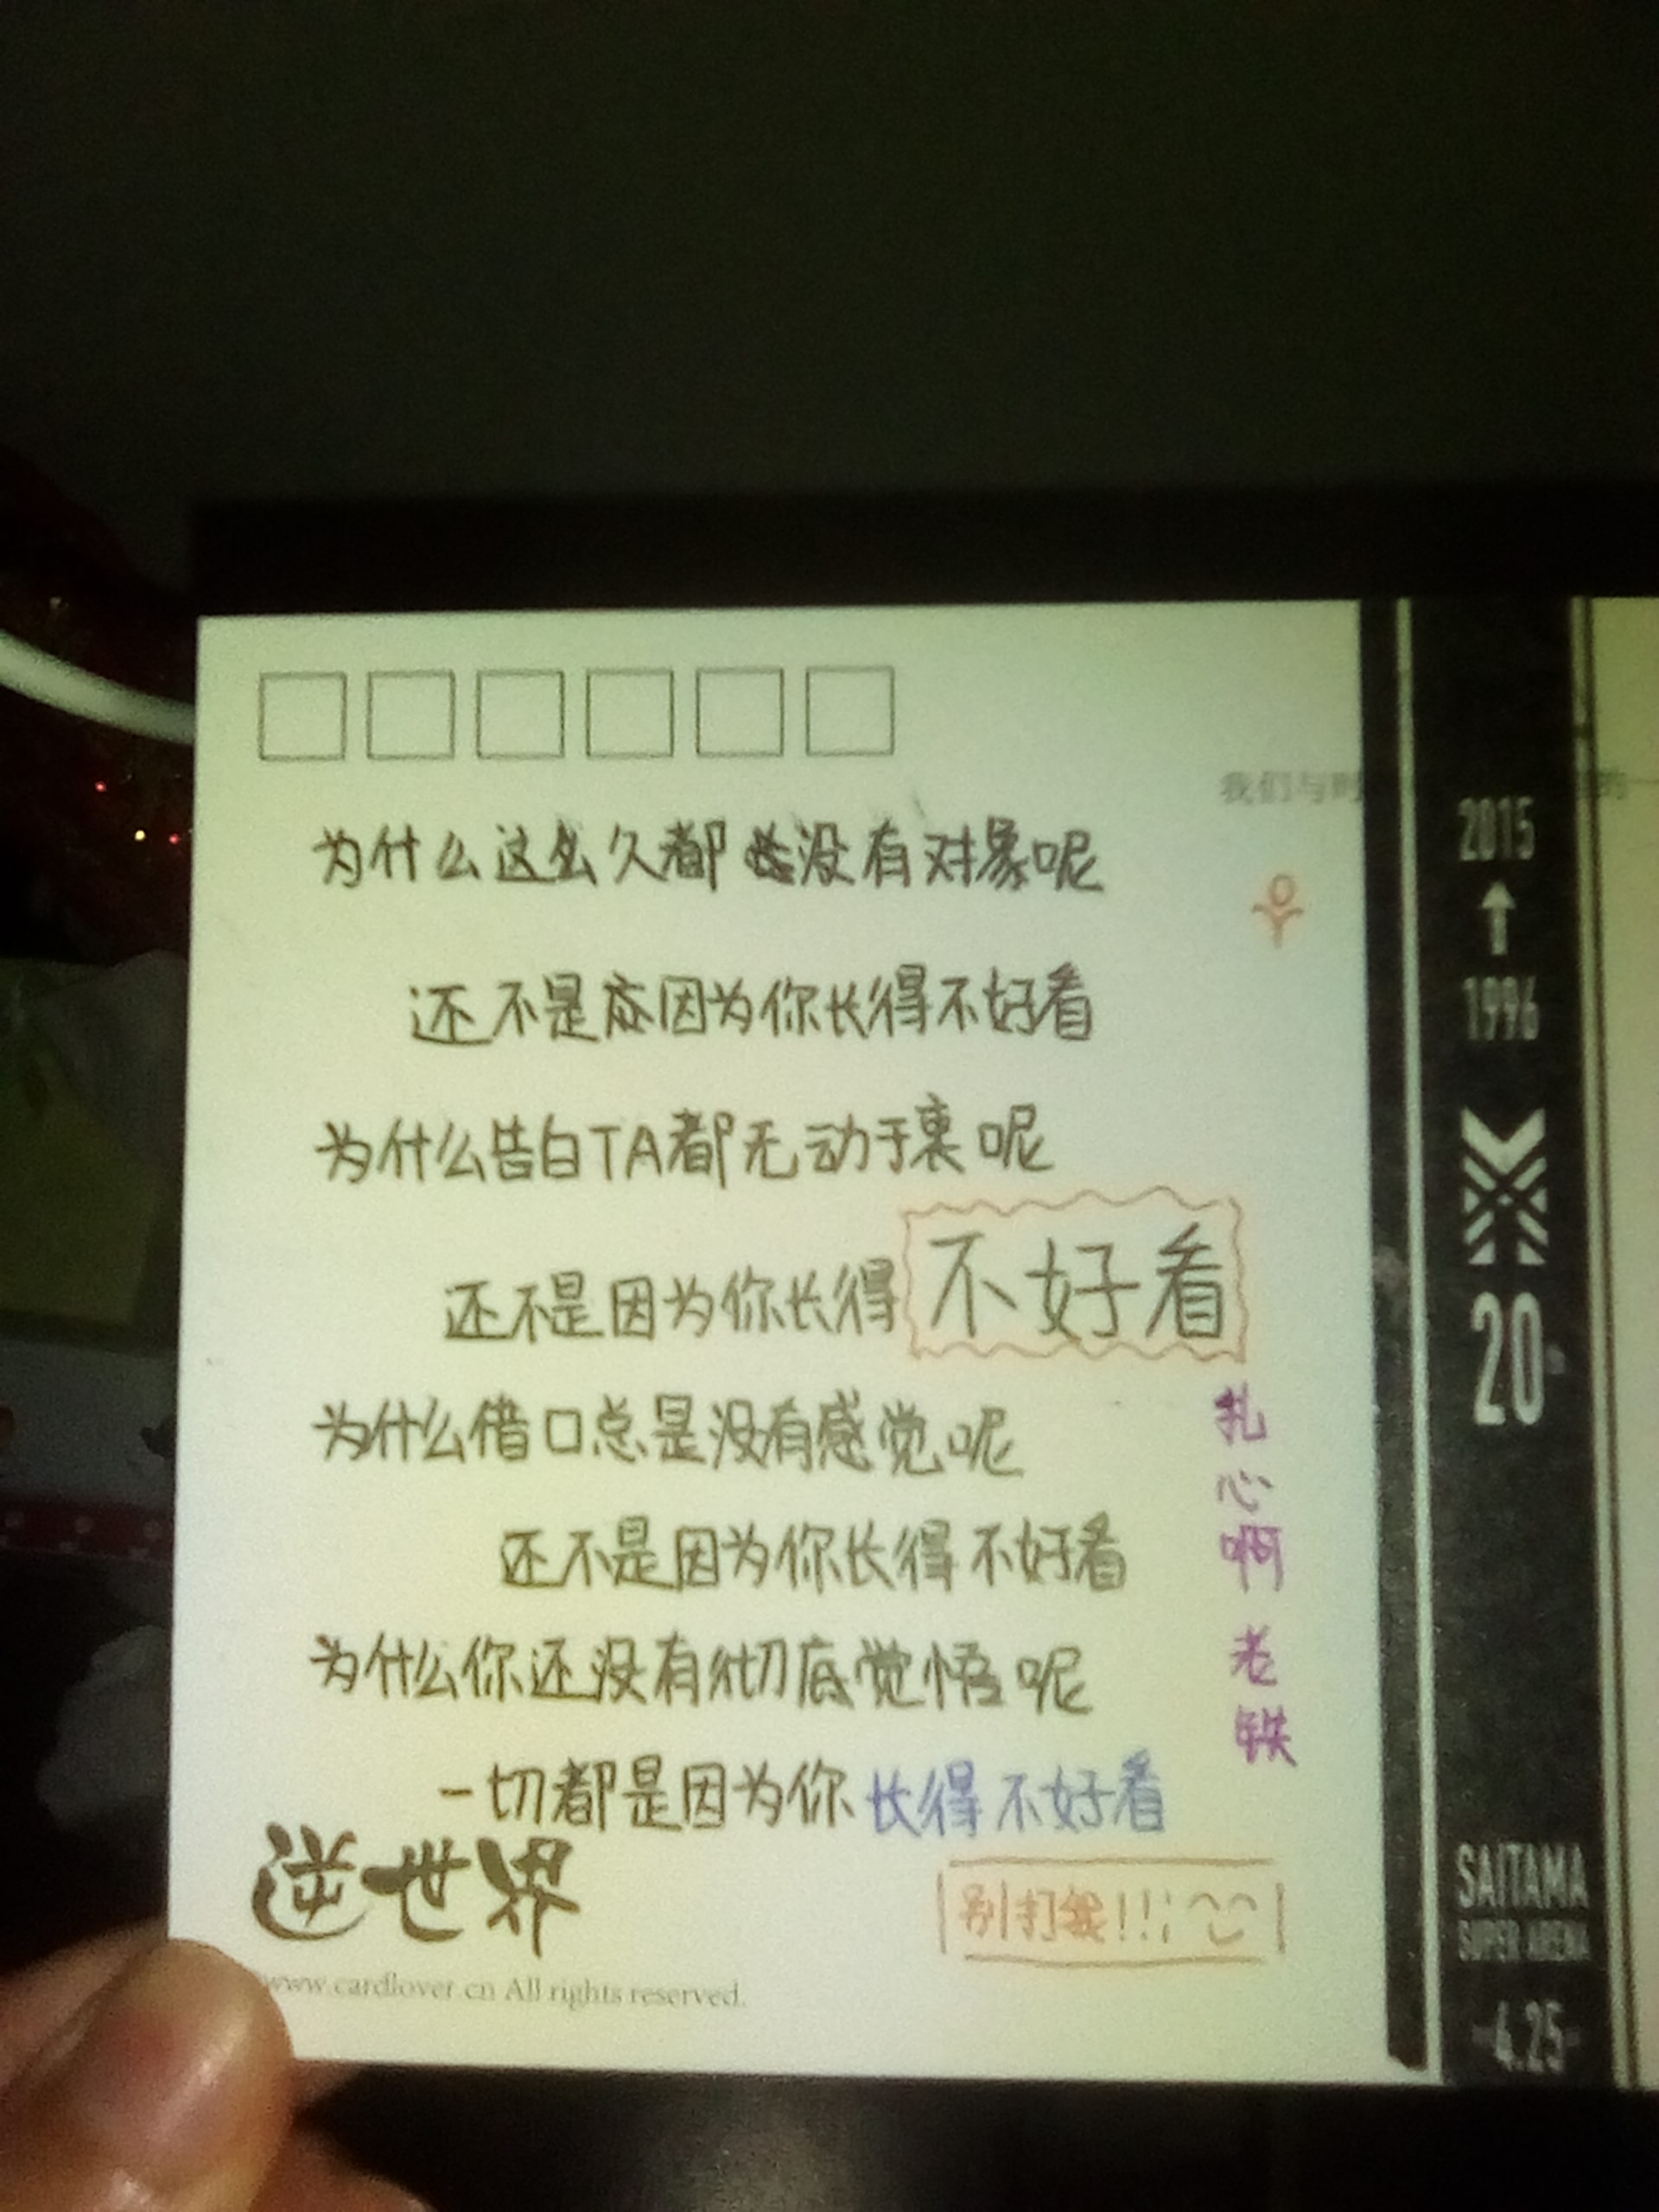 我们与时
的一
为什么这么久都没有对象呢
还不是因为你长得不好看
为什么告白TA都无动于衷呢
还不是因为你长得不好看
为什么借口总是没有感觉呢
还不是因为你长得不好看
为什么你还没有彻底觉悟呢
一切都是因为你长得不好看
扎心啊老铁
逆世界
别打我!!!
www.cardlover.cn All rights reserved.
2015
1996
20
SAITAMA
SUPER ARENA
-4.25-